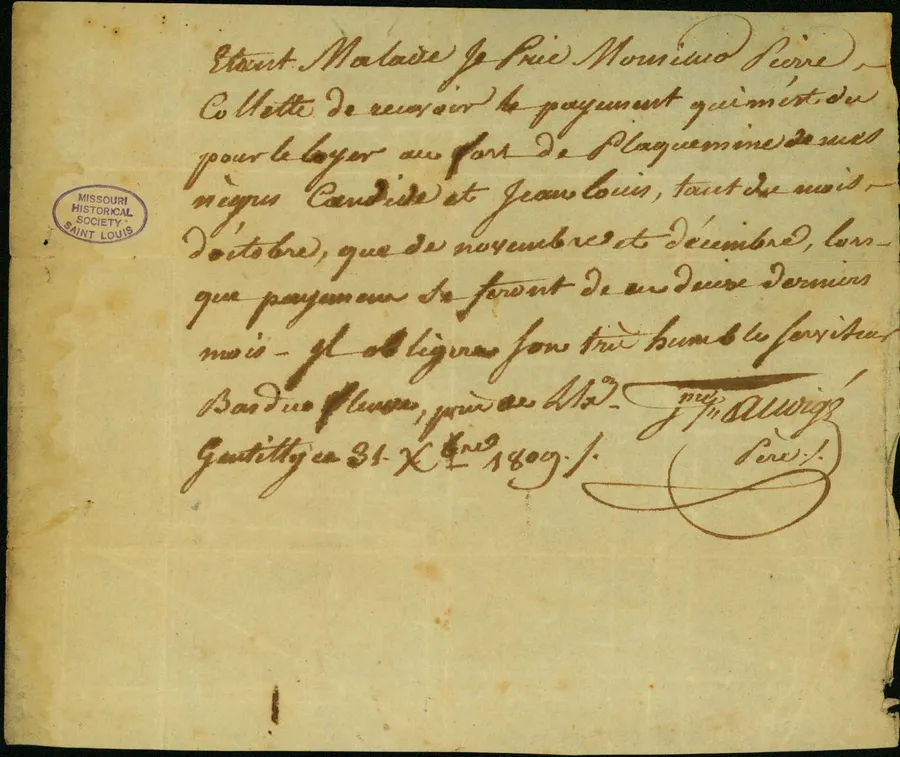 Etant Malade Je Prie Monsieur Pierre
Collette de recevoir le payement qui m'ést du
pour le loyer au fort de Plaquemine de mes
nègres Candide et Jean louis, tant du mois
d'óctobre, que de novembre et décembre, lors-
que payemens se feront de ces deux derniers
mois - Il obligera son très humble serviteur
MISSOURI
HISTORICAL
SOCIETY
SAINT LOUIS
Bas du fleuve, près de
Gentilly ce 31. Xbre 1809./.
Père./.